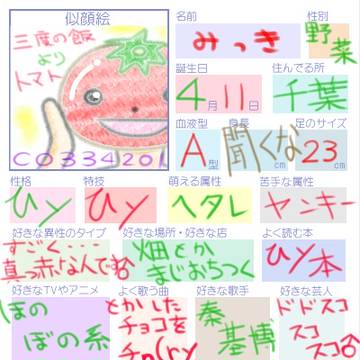 似顔絵
三度の飯
より
トマト
CO334201
名前
みっき
性別
野菜
誕生日
4月11日
住んでる所
千葉
血液型
A型
身長
聞くな
cm
足のサイズ
23cm
性格
ひy
特技
ひy
萌える属性
ヘタレ
苦手な属性
ヤンキー
好きな異性のタイプ
すごく・・・
真っ赤なんです
好きな場所・好きな店
畑とか
まじおちつく
よく読む本
ひy本
好きなTVやアニメ
ほの
ぼの系
よく歌う曲
とかした
チョコを
好きな歌手
秦
基博
好きな芸人
ドドスコ
スコ
スコ